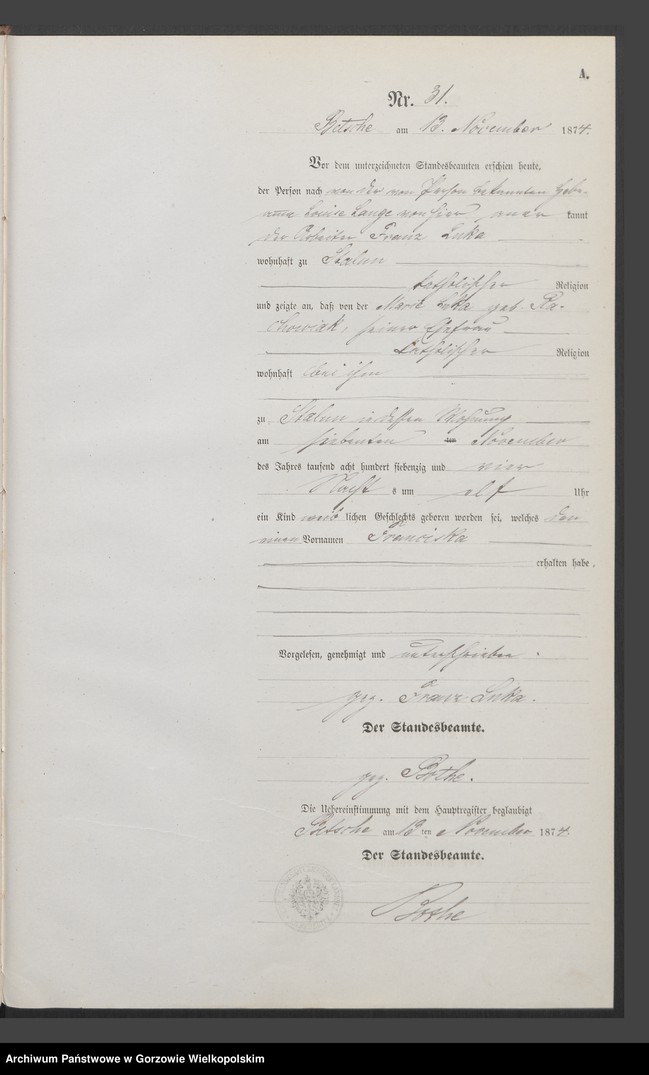 A.
Nr. 31.
Betsche am 13. November 1874.
Vor dem unterzeichneten Standesbeamten erschien heute,
der Person nach von der von Person bekannten Hebe-
amme Louise Lange von hier, aner kannt
der Arbeiter Franz Luka
wohnhaft zu Stalun
katholischer Religion
und zeigte an, daß von der Marie Luka geb. Ra-
chowiak, seiner Ehefrau
katholischer Religion
wohnhaft bei ihm
zu Stalun in dessen Wohnung
am siebenten ten November
des Jahres tausend acht hundert siebenzig und vier
Nacht s um elf Uhr
ein Kind weib lichen Geschlechts geboren worden sei, welches den
einen Vornamen Franciska
erhalten habe.
Vorgelesen, genehmigt und unterschrieben.
gez. Franz Luka.
Der Standesbeamte.
gez. Bothe.
Die Uebereinstimmung mit dem Hauptregister beglaubigt
Betsche am 13 ten November 1874
Der Standesbeamte.
Bothe
Archiwum Państwowe w Gorzowie Wielkopolskim